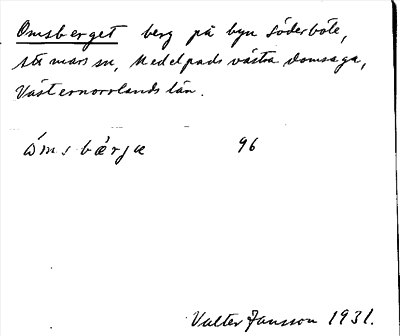 Omsberget berg på byn Söderböle,
Stömars sn, Medelpads västra domsaga,
Västernorrlands län.
ὼmsbǽrjæ 96
Valter Jansson 1931.